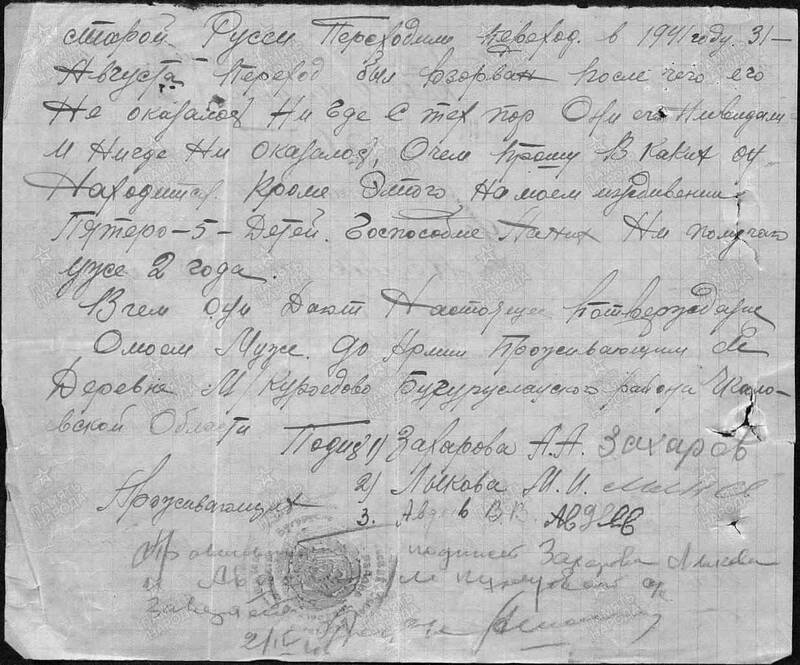 старой Русси Переходили переход. в 1941 году. 31-
Августа Переход был взорван после чего его
Не оказалоз Ни где С тех пор Они его Ни видали
и Нигде Ни оказалоз, Очем прошу В каких он
Находится. Кроме Этого на моем иждивении
Пятеро-5-Детей. Госпособие На них Ни получаю
уже 2 года.
В чем они Дают Настоящее потверждание
О моем Муже. до Армии Проживающим
Деревне М/Куроедово Бугурусланского района Чкало-
вской Области
Подпз 1) Захарова А.А. Захаров
2) Лыкова М.И.
Проживающих
3. Авдеев В.В. Авдеев
подписи Захарова Лыкова
и